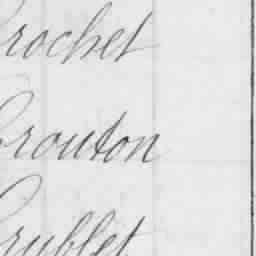 Crochet
Crouton
Crublet